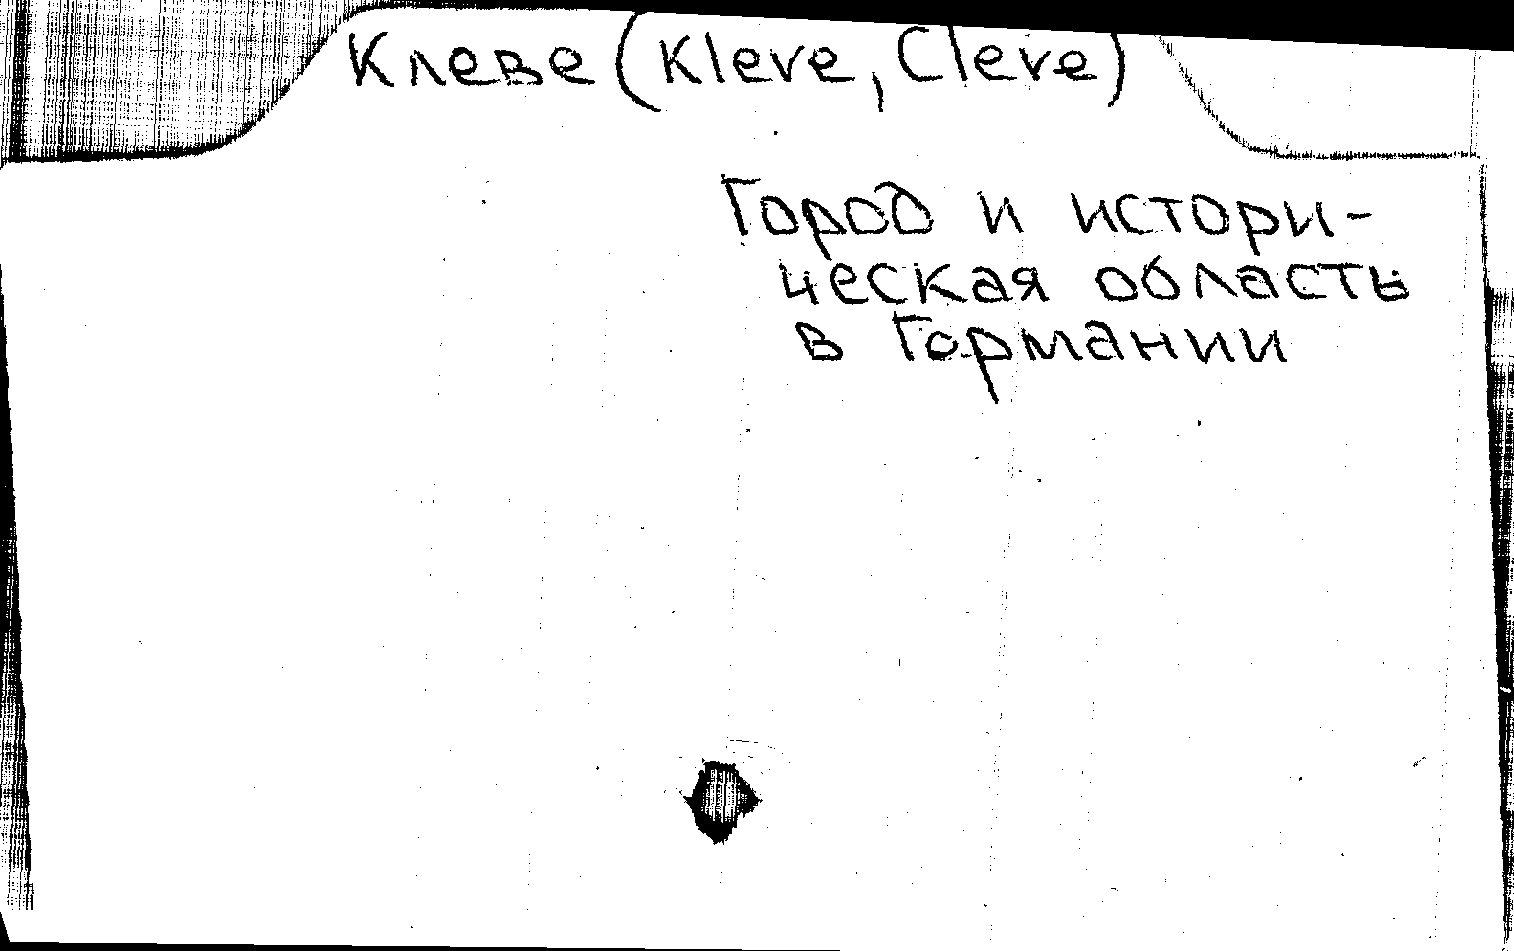 Клеве (Kleve, Cleve)
Город и истори-
ческая область
в Германии